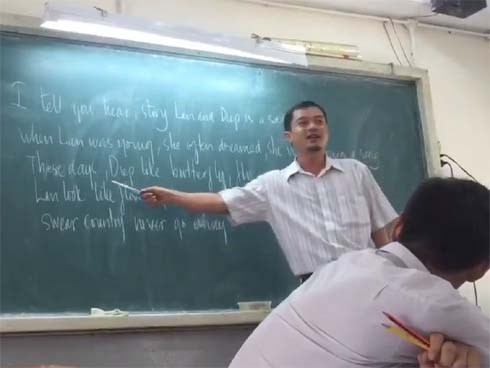 I tell you hear, story Lan and Diep is a
when Lan was young, she often dreamed, she
These days, Diep like butterfly,
Lan look like
swear country never go